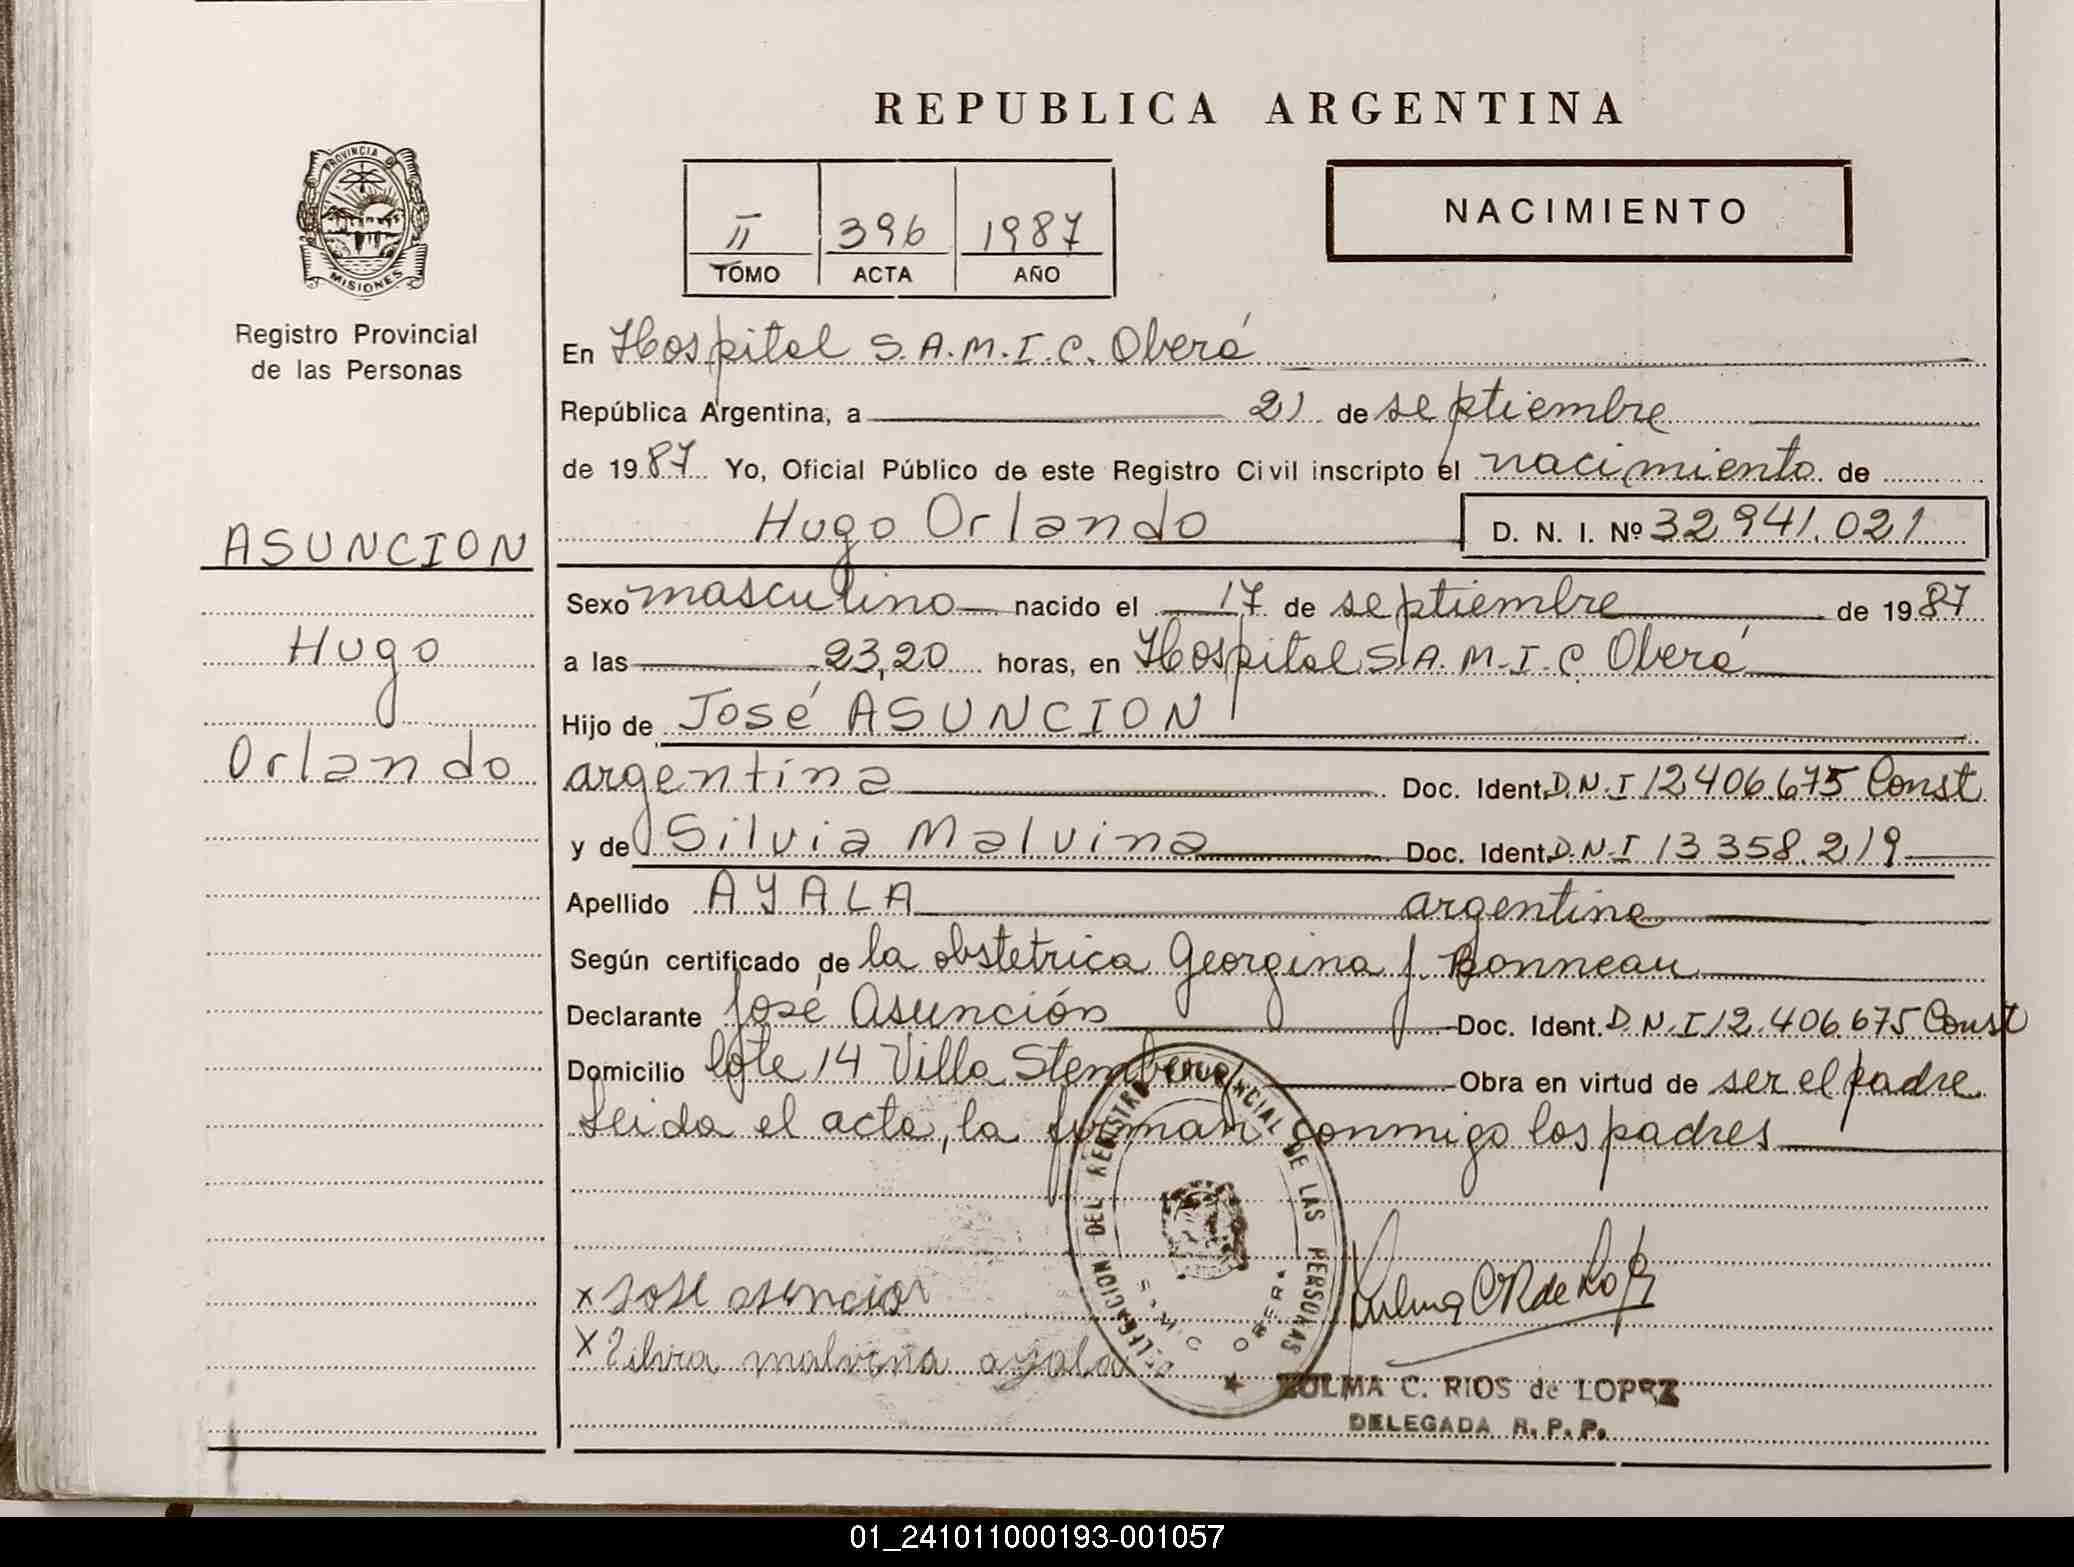 REPUBLICA ARGENTINA
PROVINCIA DE
MISIONES
Registro Provincial
de las Personas
II 396 1987
TOMO ACTA AÑO
NACIMIENTO
En Hospital S.A.M.I.C. Oberá
República Argentina, a 21 de septiembre
de 1987 Yo, Oficial Público de este Registro Civil inscripto el nacimiento de
Hugo Orlando D. N. I. Nº 32 941.021
ASUNCION
Hugo
Orlando
Sexo masculino nacido el 17 de septiembre de 1987
a las 23,20 horas, en Hospital S.A.M.I.C Oberá
Hijo de José ASUNCION
argentina Doc. Ident. D.N.I 12.406.675 Const
y de Silvia Malvina Doc. Ident. D.N.I 13 358.219
Apellido AYALA argentina
Según certificado de la obstetrica Georgina J. Bonneau
Declarante José Asunción Doc. Ident. D.N.I 12.406.675 Const
Domicilio lote 14 Villa Obra en virtud de ser el padre
Leida el acta, la firman conmigo los padres
DELEGACION DEL REGISTRO PROVINCIAL DE LAS PERSONAS
OBERA
x José asencion
x Silvia malvina ayala
ZULMA C. RIOS de LOPEZ
DELEGADA R. P. P.
01_241011000193-001057